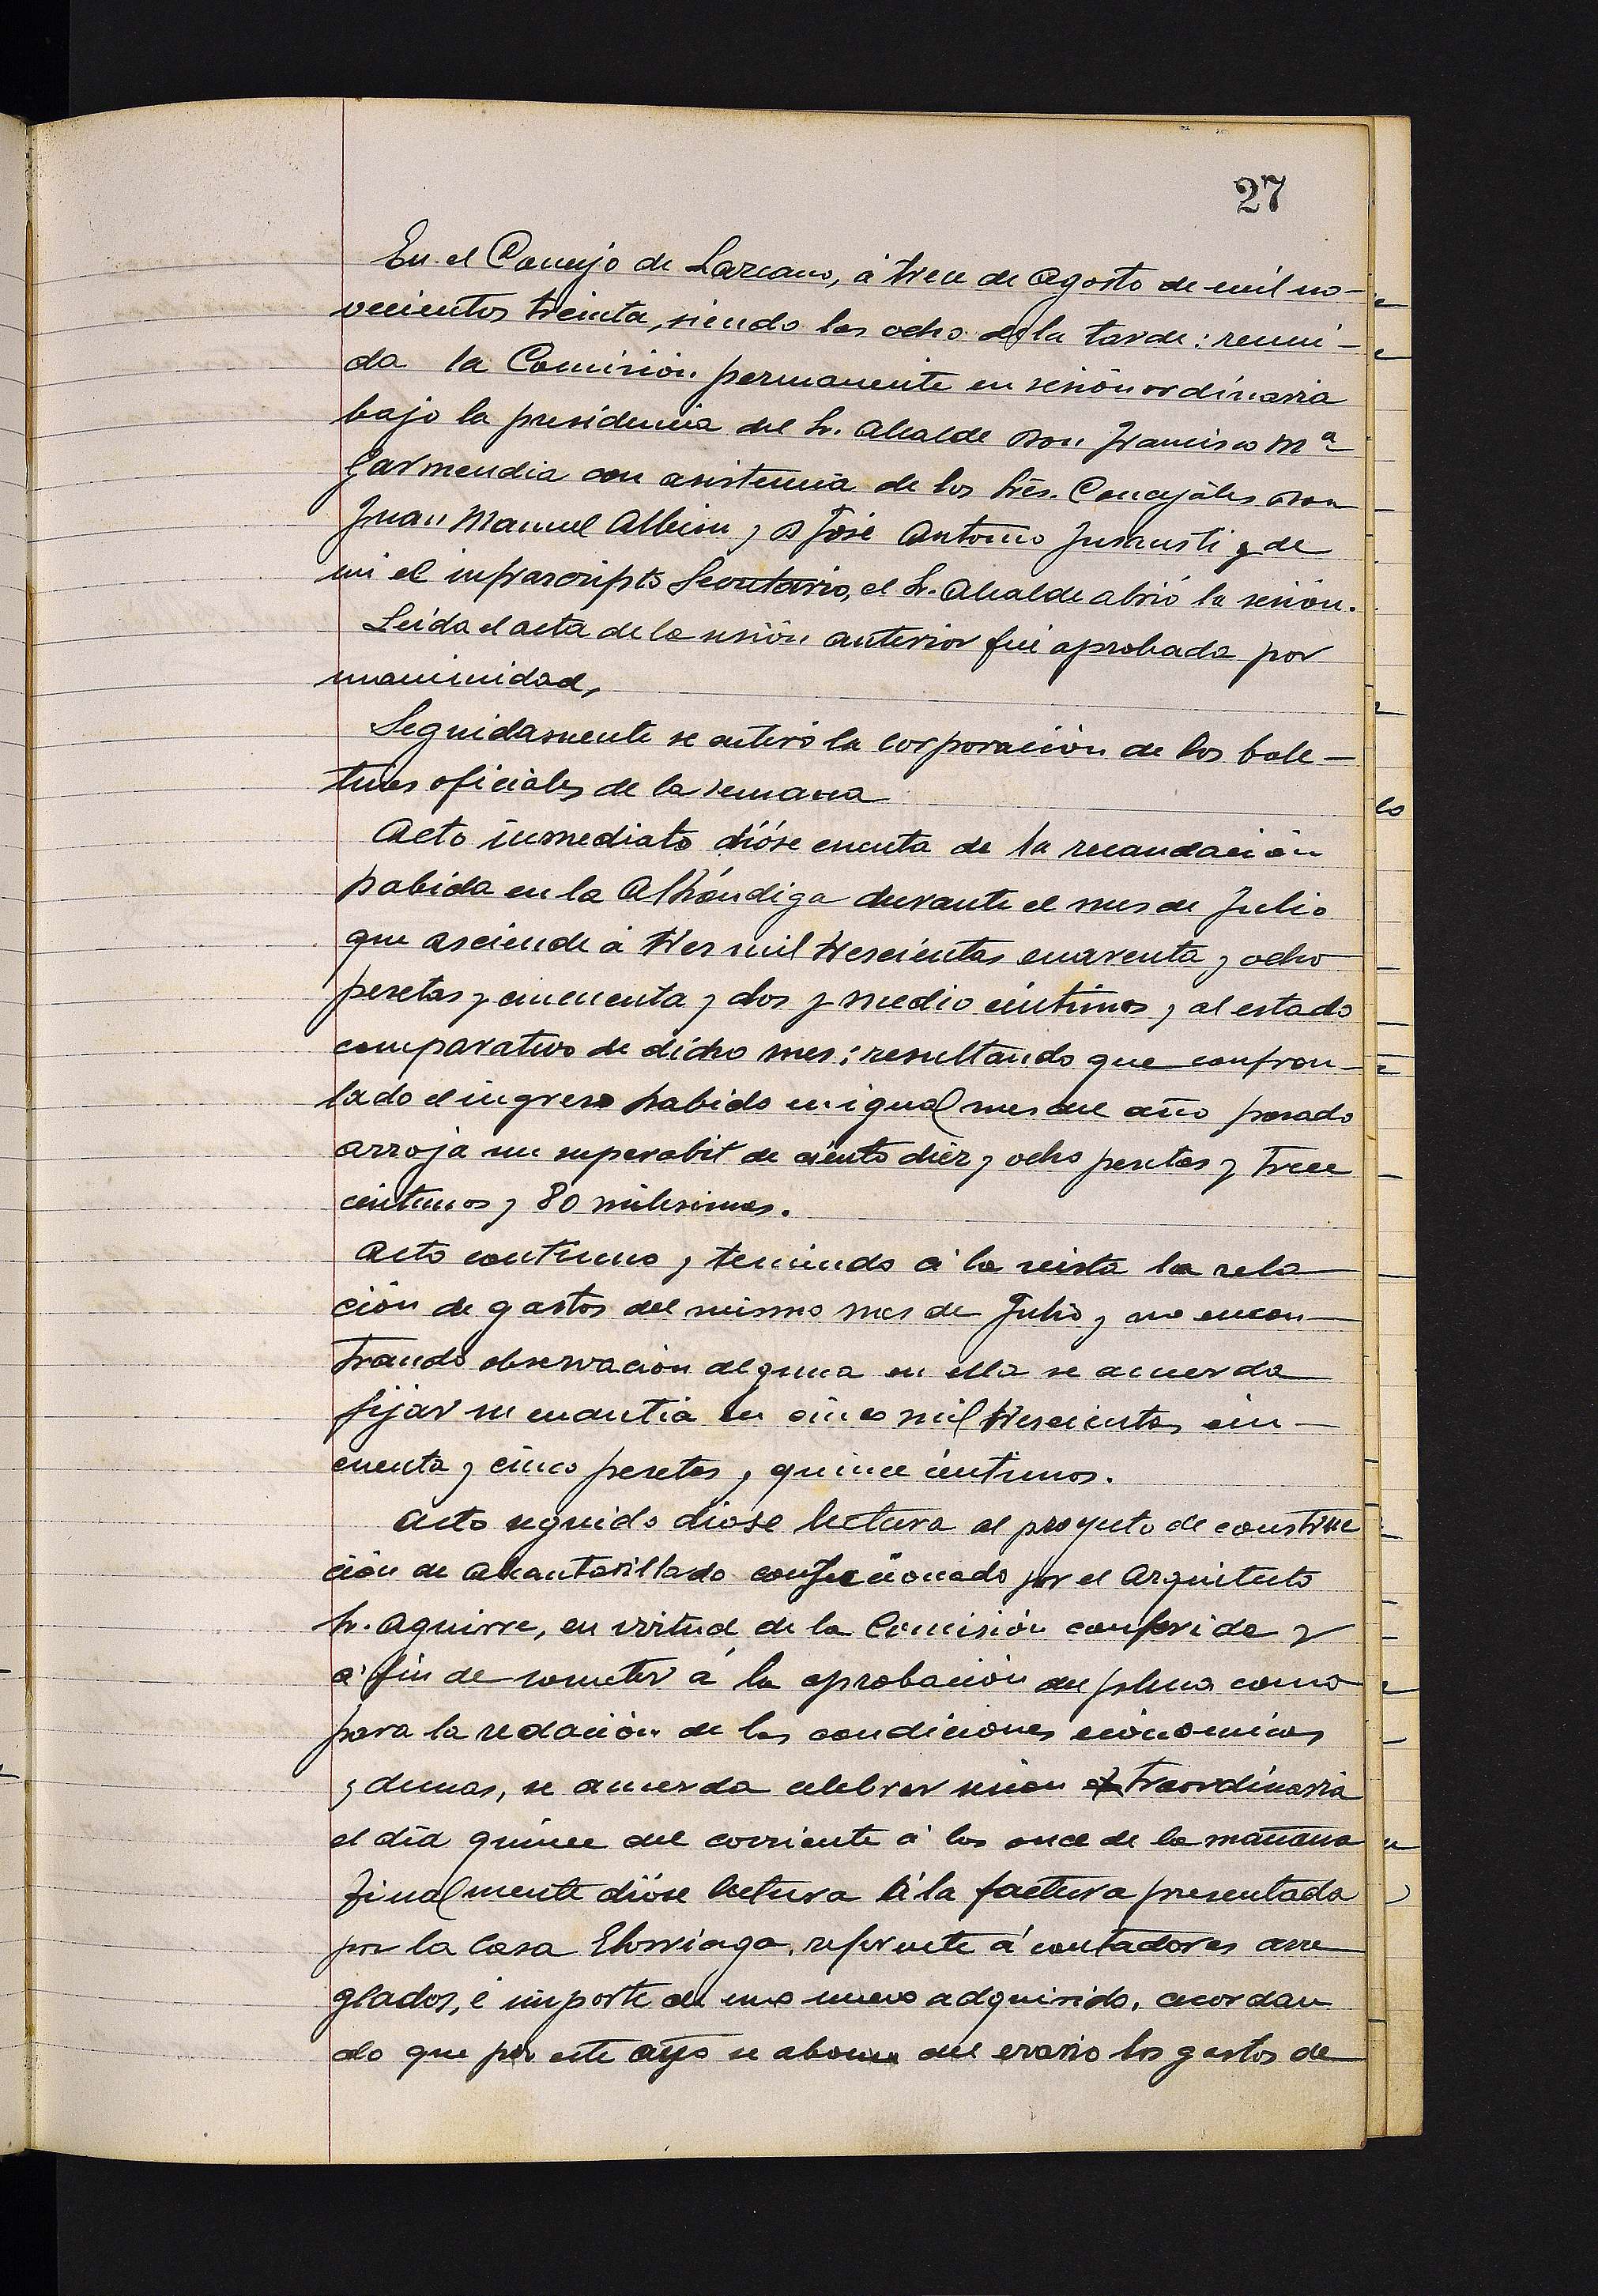 27
En el Concejo de Lazcano, á trece de Agosto de mil no-
vecientos treinta, siendo las ocho de la tarde: reuni-
da la Comisión permanente en sesión ordinaria
bajo la presidencia del Sr. Alcalde Don Francisco Mª
Garmendia con asistencia de los Sres. Concejales Don
Juan Manuel Albisu y D José Antonio Insausti y de
mi el infrascripto Secretario, el Sr. Alcalde abrió la sesión.
Leida el acta de la sesión anterior fué aprobada por
unanimidad,
Seguidamente se enteró la corporación de los bole-
tines oficiales de la semana
Acto inmediato dióse cuenta de la recaudación
habida en la Alhóndiga durante el mes de Julio
que asciende á tres mil trescientas cuarenta y ocho
pesetas y cincuenta y dos y medio céntimos y al estado
comparativo de dicho mes; resultando que confron-
tado el ingreso habido en igual mes del año pasado
arroja un superabit de ciento diez y ocho pesetas y trece
céntimos y 80 milesimas.
Acto continuo y teniendo á la vista la rela
ción de gastos del mismo mes de Julio y no encon-
trando observación alguna en ella se acuerda
fijar su cuantia en cinco mil trescientas cin-
cuenta y cinco pesetas y quince céntimos.
Acto seguido diose lectura al proyecto de construc
ción de Alcantarillado confeccionado por el Arquitecto
Sr. Aguirre, en virtud de la Comisión conferida y
á fin de someter á la aprobación del pleno como
para la redación de las condiciones económicas
y demas, se acuerda celebrar sesion extraordinaria
el día quince del corriente á las once de la mañana
Finalmente dióse lectura á la factura presentada
por la Casa Elorriaga, referente á contadores arre
glados, é importe de uno nuevo adquirido, acordan
do que por este año se abone del erario los gastos de